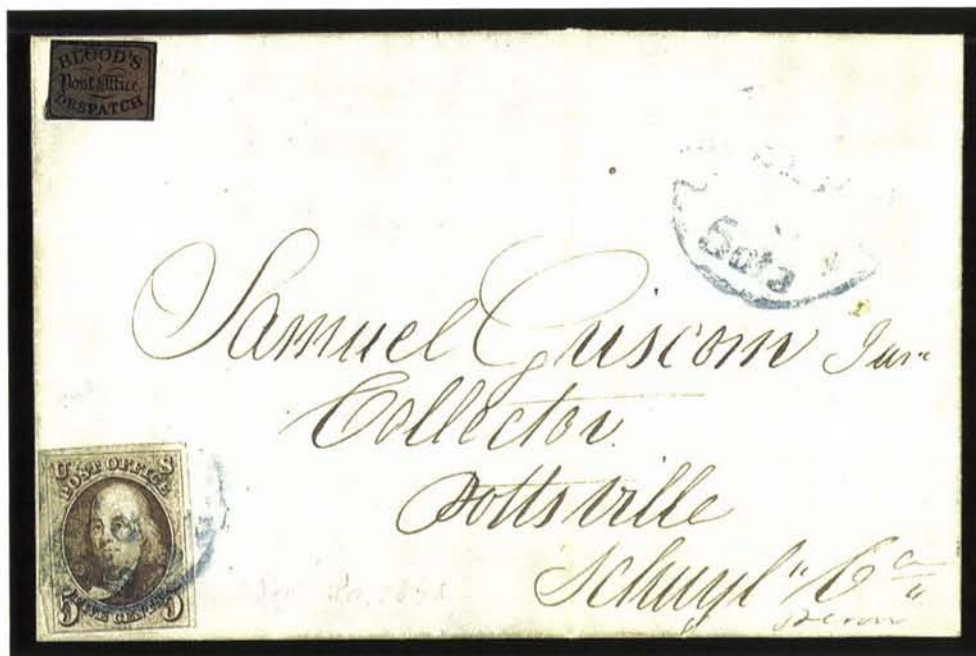 BLOOD'S
Post Office
DESPATCH
5 cts
Samuel Griscom Junr
Collector
Pottsville
Schuyl" Co
U S
POST OFFICE
FIVE CENTS
5 5